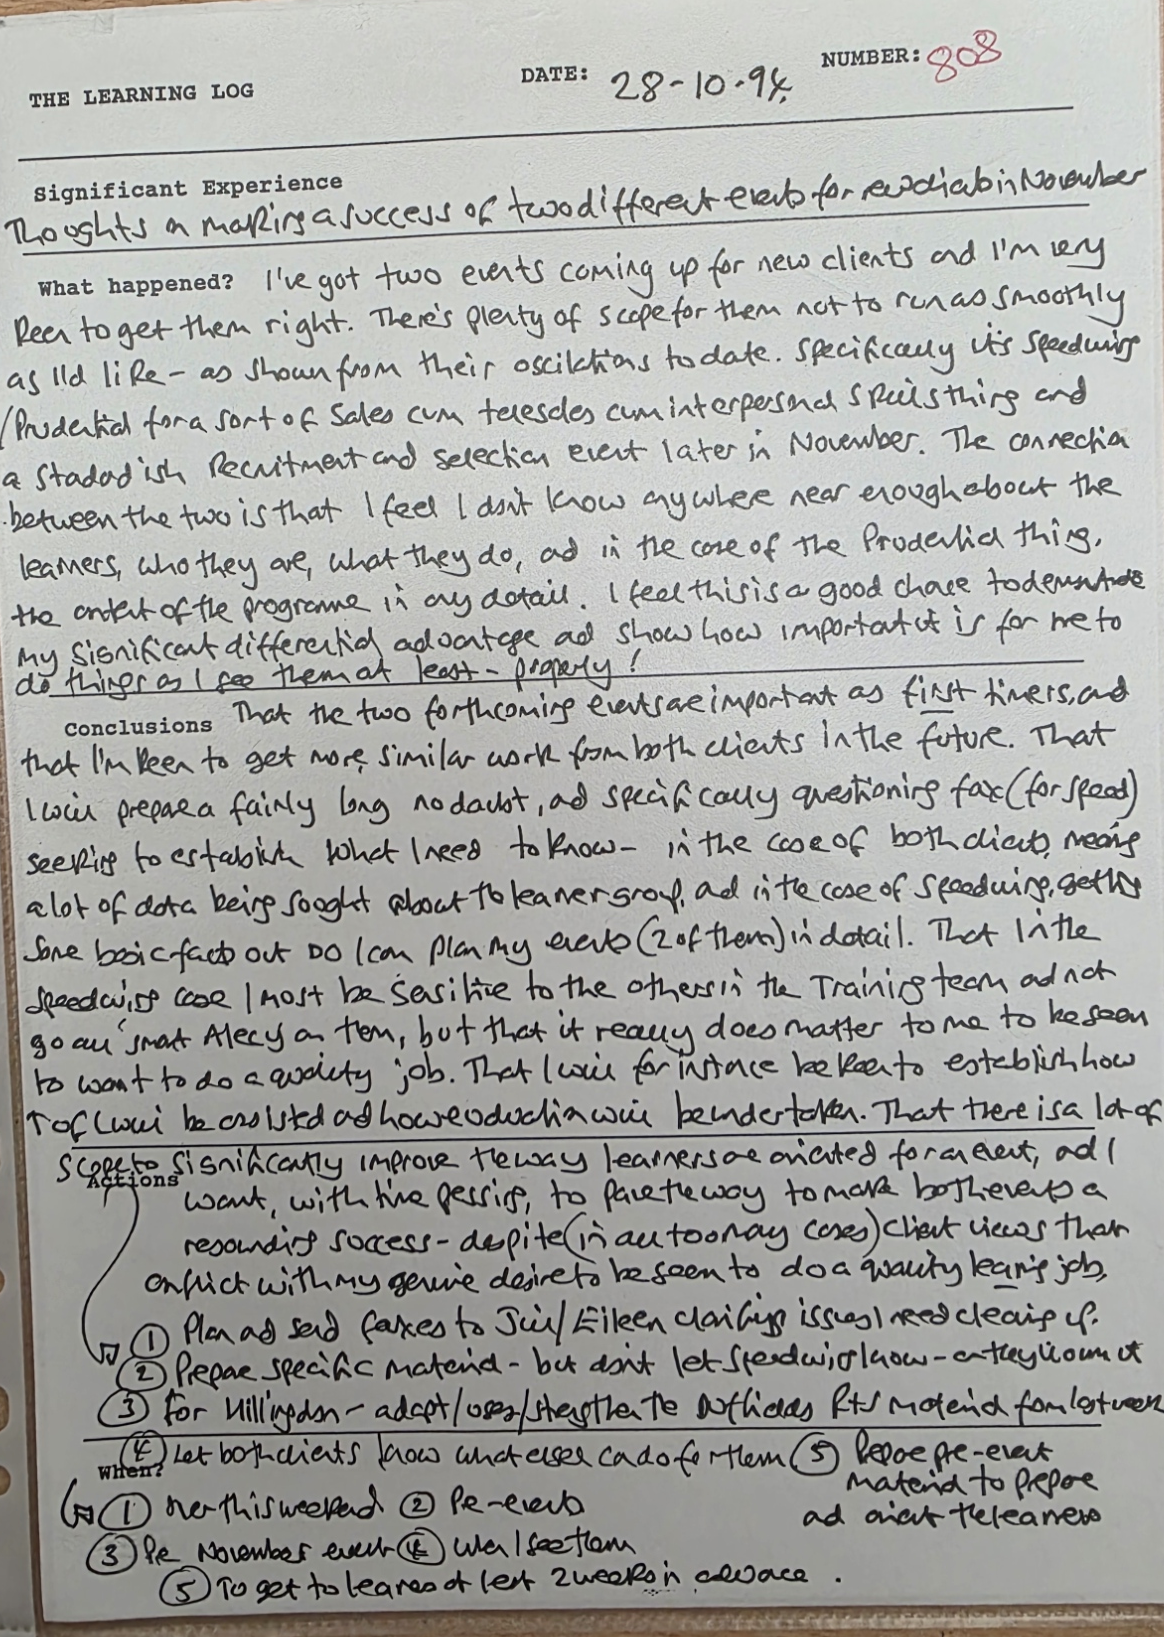 THE LEARNING LOG
DATE: 28-10-94.
NUMBER: 808
Significant Experience
Thoughts on making a success of two different events for new clients in November
What happened? I've got two events coming up for new clients and I'm very
keen to get them right. There's plenty of scope for them not to run as smoothly
as I'd like - as shown from their oscillations to date. Specifically it's Speedwing
/Prudential for a sort of Sales cum telesales cum interpersonal skills thing and
a Standardish Recruitment and Selection event later in November. The connection
between the two is that I feel I don't know anywhere near enough about the
learners, who they are, what they do, and in the case of the Prudential thing,
the content of the programme in any detail. I feel this is a good chance to demonstrate
my significant differential advantage and show how important it is for me to
do things as I see them at least - properly!
Conclusions That the two forthcoming events are important as first timers, and
that I'm keen to get more, similar work from both clients in the future. That
I will prepare a fairly long no doubt, and specifically questioning fax (for speed)
seeking to establish what I need to know - in the case of both clients, meaning
a lot of data being sought about the learner group, and in the case of Speedwing, getting
some basic facts out so I can plan my events (2 of them) in detail. That in the
Speedwing case I must be sensitive to the others in the Training team and not
go all 'smart Alecy on them, but that it really does matter to me to be seen
to want to do a quality job. That I will for instance be keen to establish how
T of L will be assisted and how evaluation will be undertaken. That there is a lot of
scope to significantly improve the way learners are oriented for an event, and I
Actions
want, with time pressing, to pave the way to make both events a
resounding success - despite (in all too many cases) client views that
conflict with my genuine desire to be seen to do a quality learning job.
① Plan and send faxes to Jill/Eileen clarifying issues I need clearing up.
② Prepare specific material - but don't let Speedwing know - or they'll own it
③ For Hillingdon - adapt/use/strengthen the R+S material from last week
④ Let both clients know what else I can do for them ⑤ Prepare pre-event
When?
material to prepare
and orient the learners
① Over this weekend ② Pre-events
③ Pre November event ④ When I see them
⑤ To get to learners at least 2 weeks in advance.